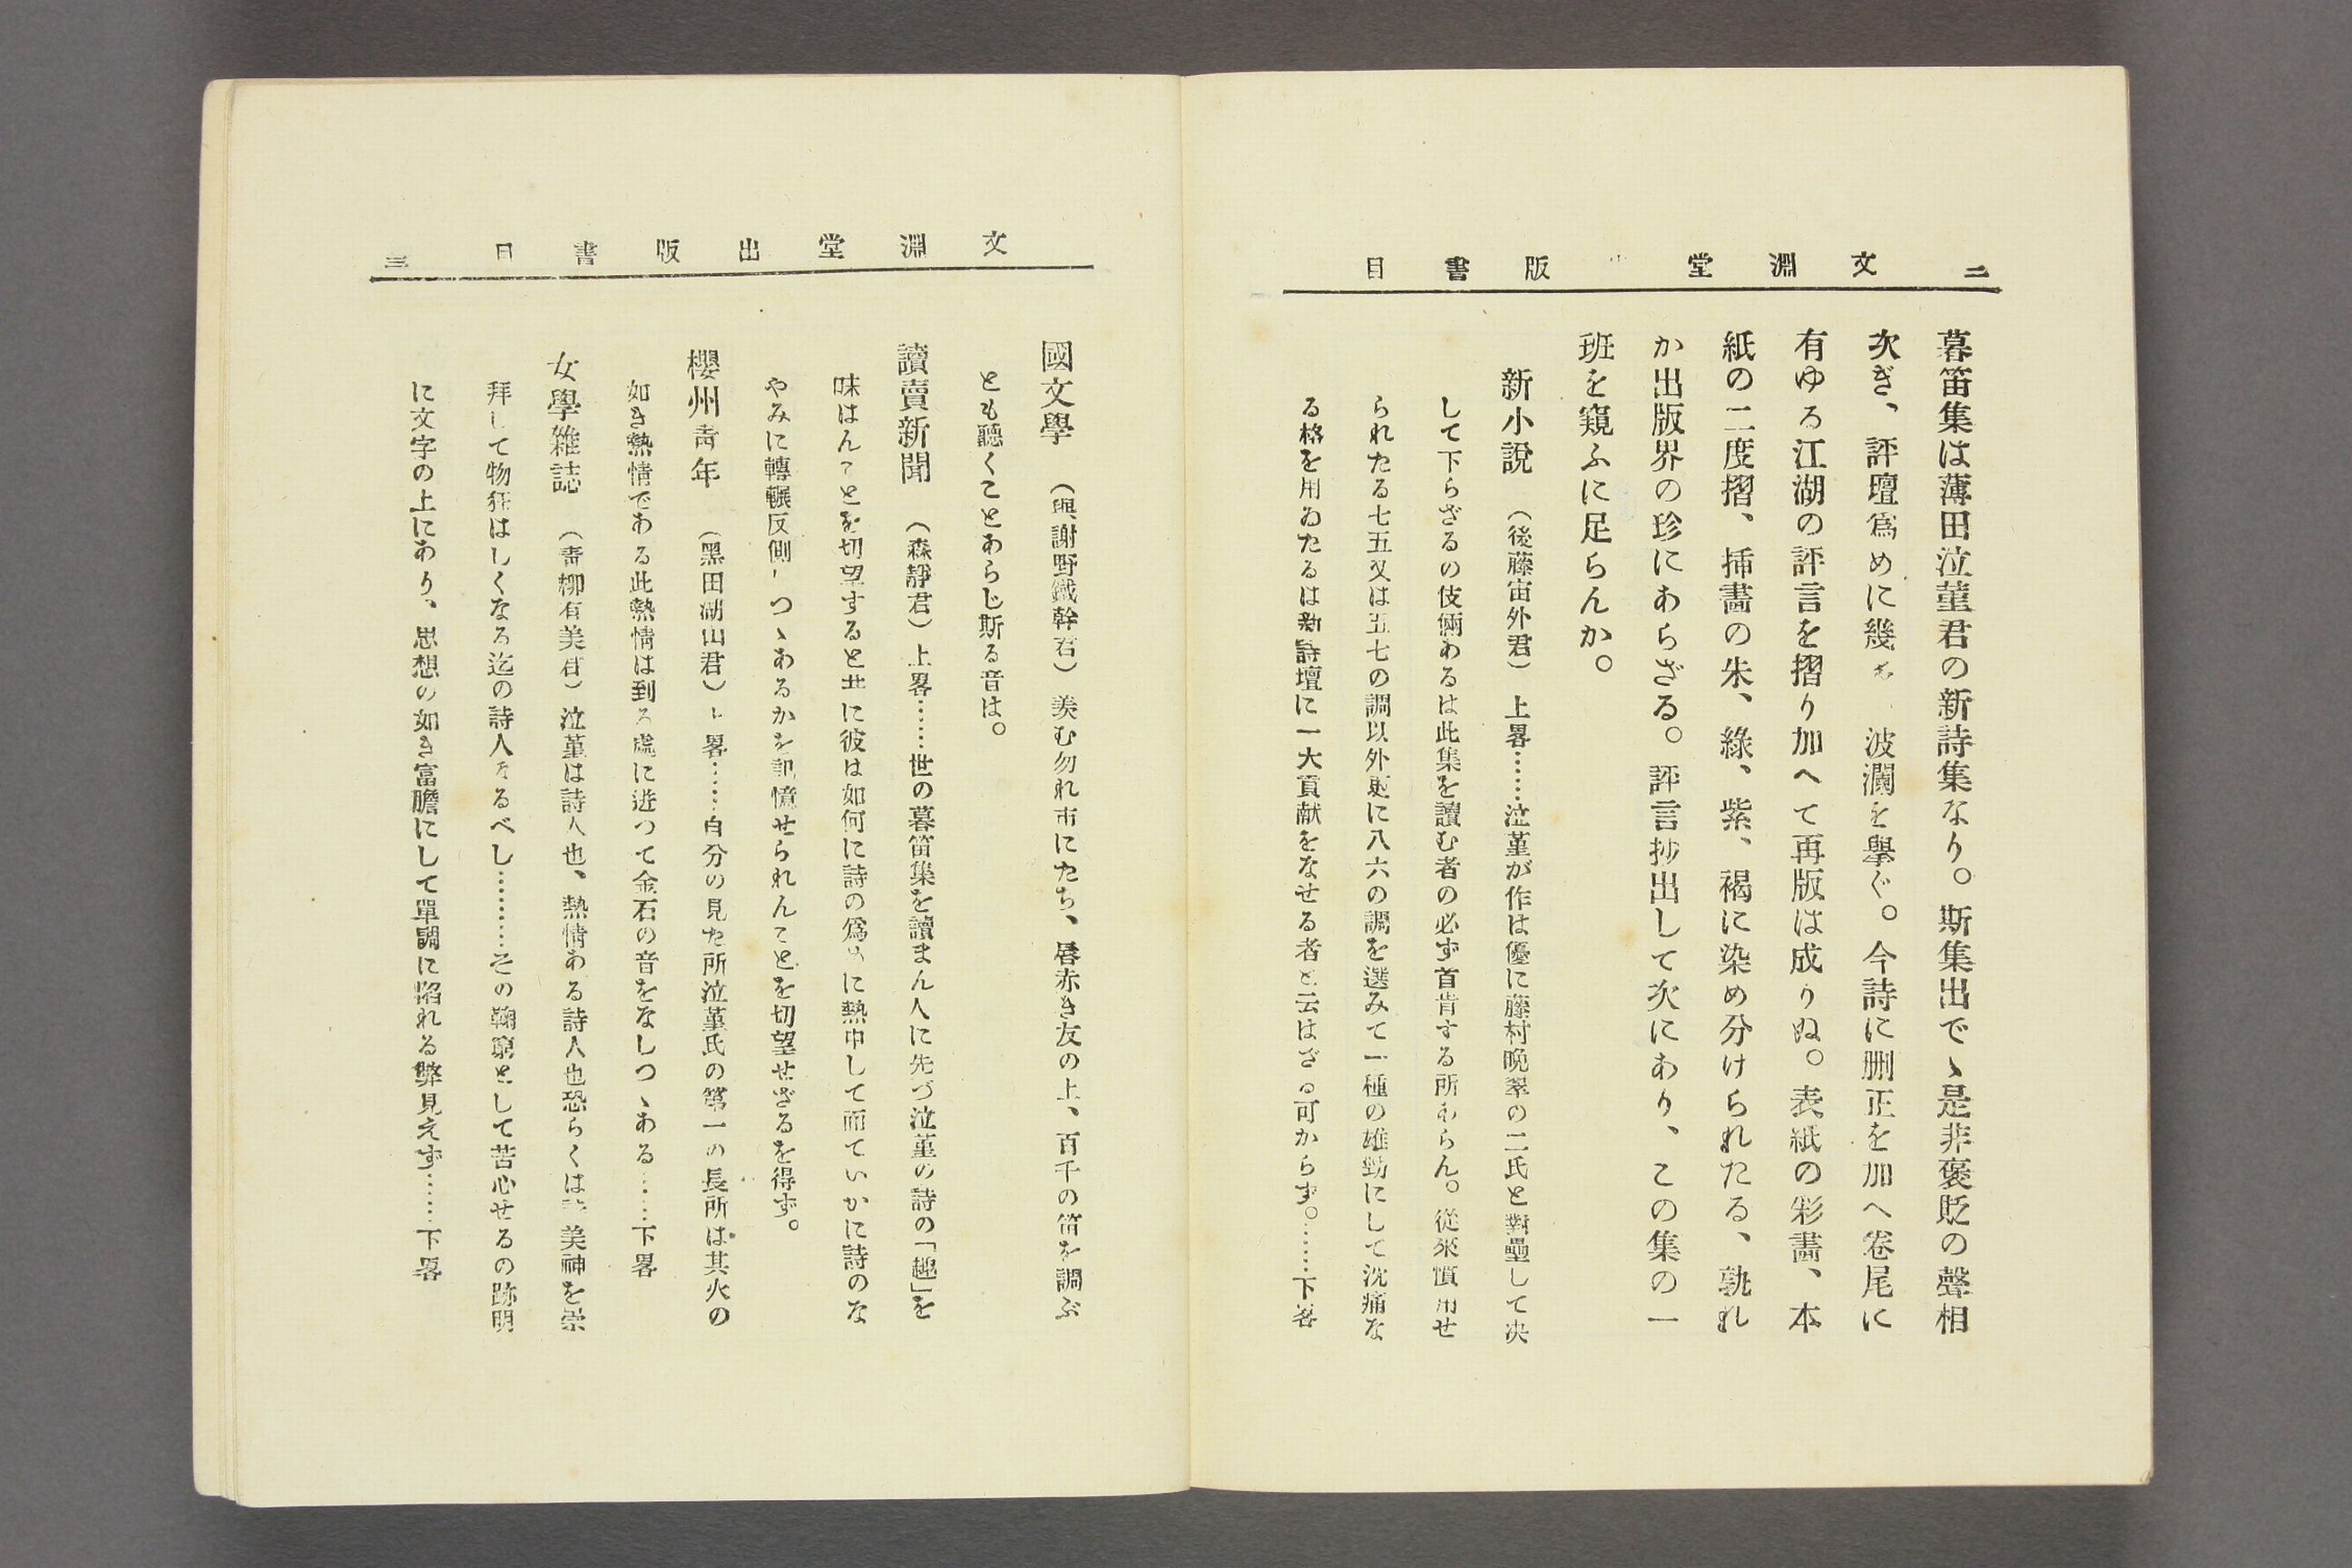 二　文淵堂　版書目
暮笛集は薄田泣菫君の新詩集なり。斯集出でゝ是非褒貶の聲相
次ぎ、評壇爲めに幾多波瀾を擧ぐ。今詩に刪正を加へ卷尾に
有ゆる江湖の評言を摺り加へて再版は成りぬ。表紙の彩畵、本
紙の二度摺、挿畵の朱、綠、紫、褐に染め分けられたる、孰れ
か出版界の珍にあらざる。評言抄出して次にあり、この集の一
班を窺ふに足らんか。
新小說　（後藤宙外君）　上畧……泣菫が作は優に藤村晩翠の二氏と對壘して决
して下らざるの伎倆あるは此集を讀む者の必ず首肯する所あらん。從來慣用せ
られたる七五又は五七の調以外更に八六の調を選みて一種の雄勁にして沈痛な
る格を用ゐたるは新詩壇に一大貢献をなせる者と云はざる可からず。……下畧
文淵堂出版書目　三
國文學　（與謝野鐵幹君）　美む勿れ市にたち、唇赤き友の上、百千の笛を調ぶ
とも聽くことあらじ斯る音は。
讀賣新聞　（森靜君）　上畧……世の暮笛集を讀まん人に先づ泣菫の詩の「趣」を
味はんことを切望すると共に彼は如何に詩の爲めに熱中して而ていかに詩のな
やみに轉輾反側しつゝあるかを記憶せられんことを切望せざるを得ず。
櫻州靑年　（黑田湖山君）　上畧……自分の見た所泣菫氏の第一の長所は其火の
如き熱情である此熱情は到る處に迸つて金石の音をなしつゝある……下畧
女學雜誌　（靑柳有美君）　泣菫は詩人也、熱情ある詩人也恐らくは詩美神を崇
拜して物狂はしくなる迄の詩人なるべし………その鞠窮として苦心せるの跡明
に文字の上にあり、思想の如き富膽にして單調に陷れる弊見えず……下畧